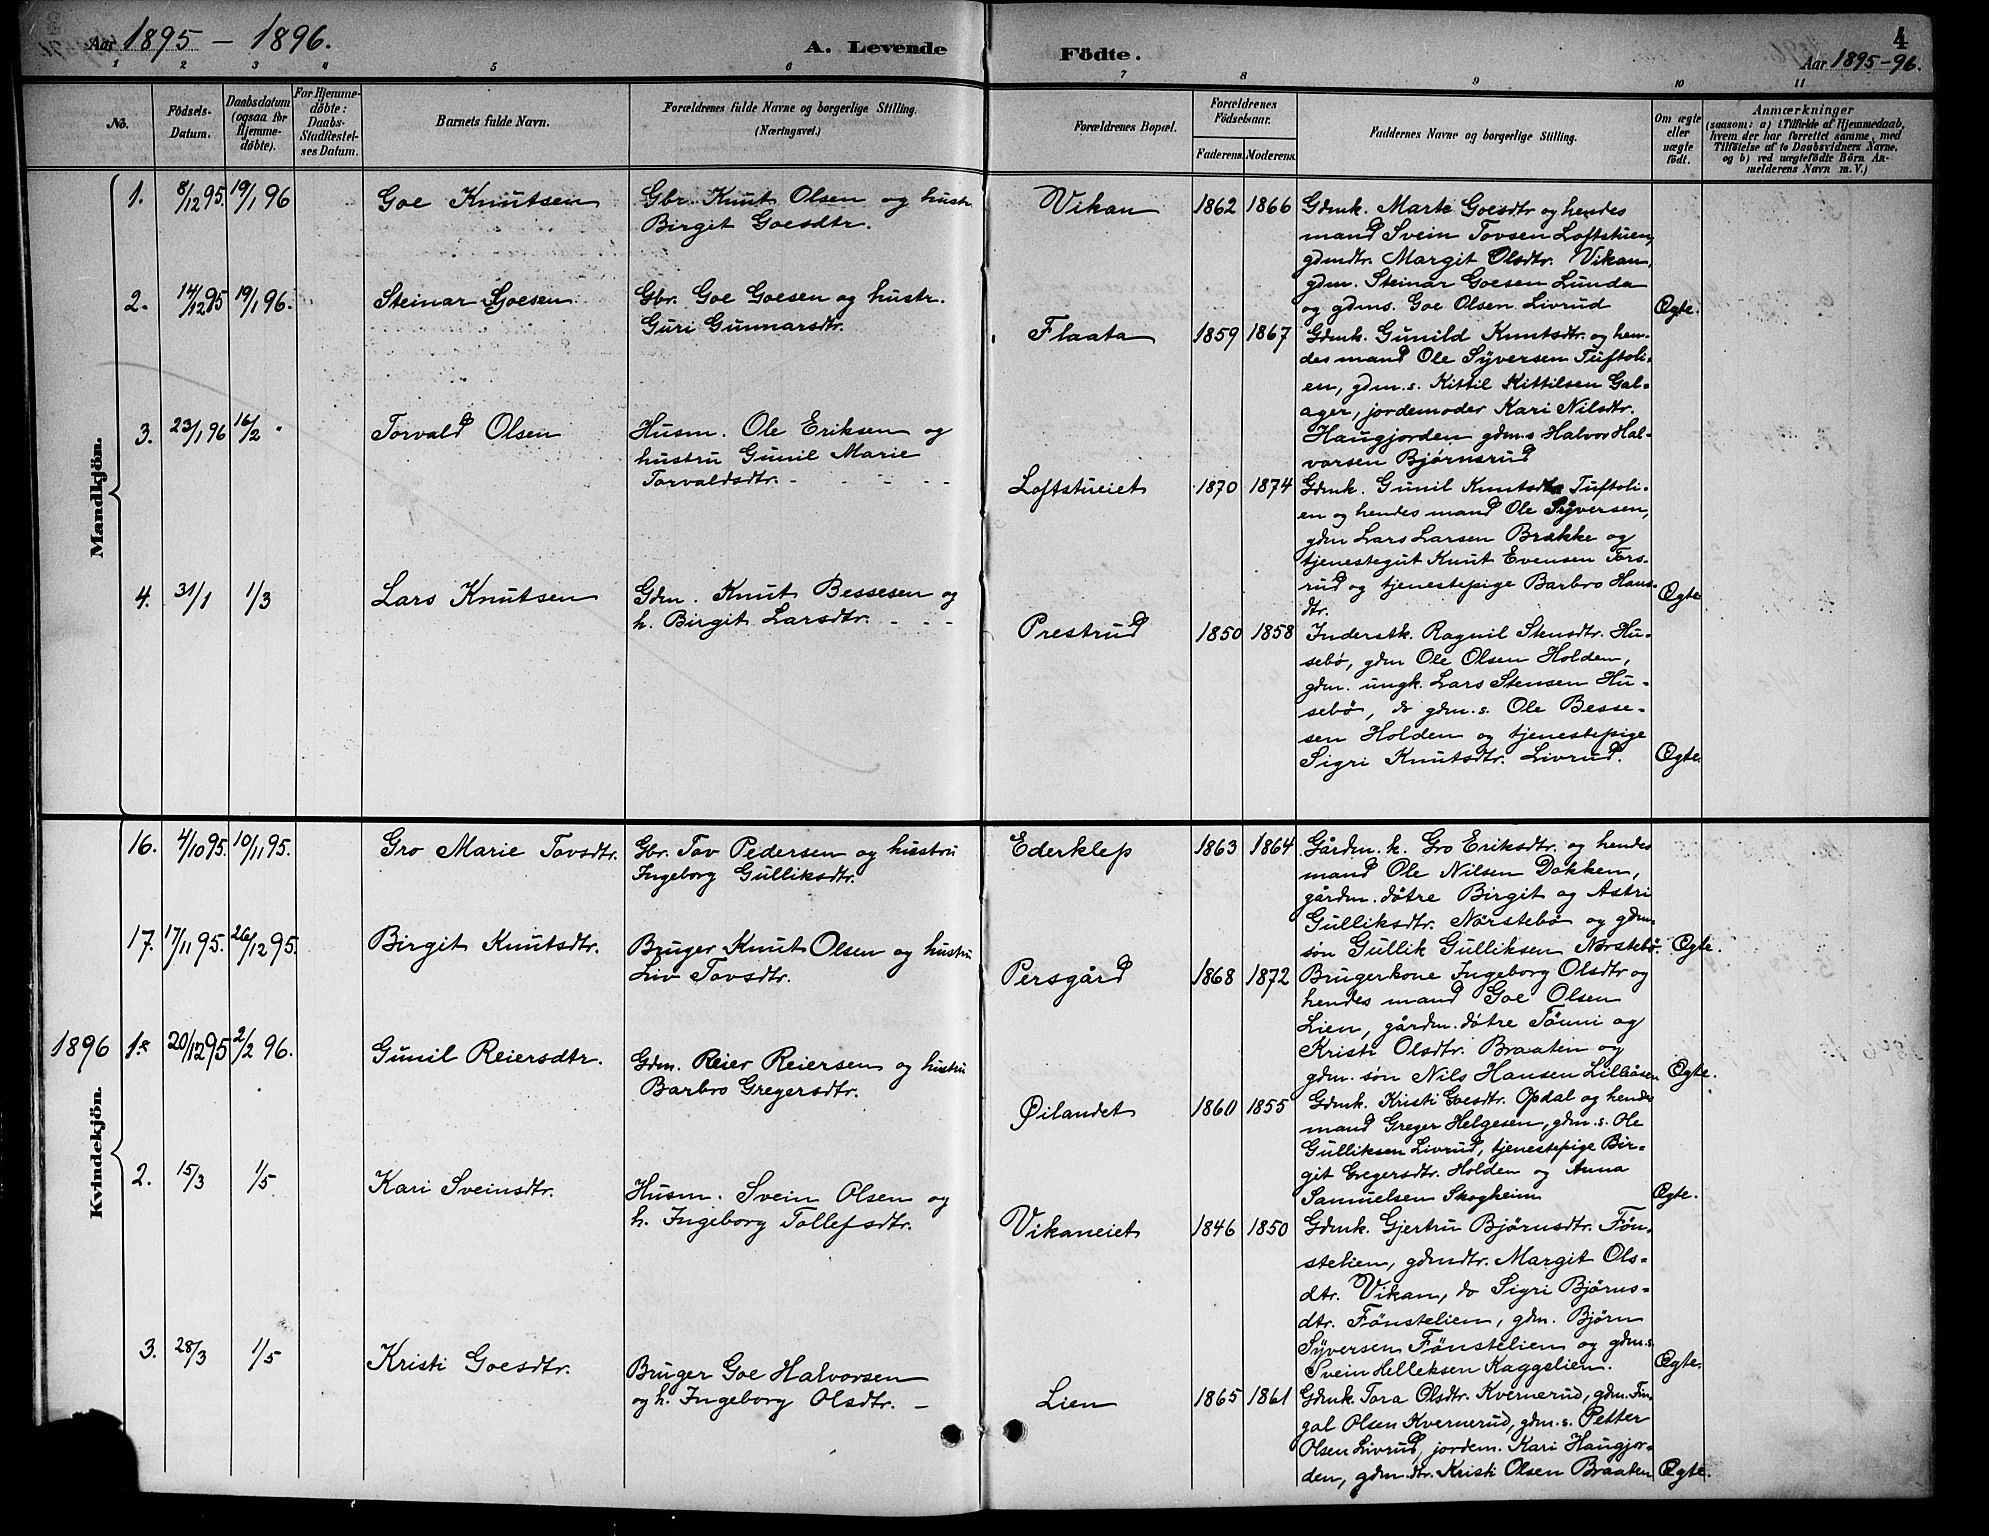 Aar 1895 - 1896.
A. Levende Födte.
4
Aar 1895-96.
1 2 3 4 5 6 7 8 9 10 11
No.
Födsels-
Datum.
Daabsdatum
(ogsaa for
Hjemme-
döbte).
For Hjemme-
döbte:
Daabs-
Stadfæstel-
ses Datum.
Barnets fulde Navn.
Forældrenes fulde Navne og borgerlige Stilling.
(Næringsvei.)
Forældrenes Bopæl.
Forældrenes
Födselsaar.
Faderens. Moderens.
Faddernes Navne og borgerlige Stilling.
Om ægte
eller
uægte
födt.
Anmærkninger
(saasom: a) i Tilfælde af Hjemmedaab,
hvem der har forrettet samme, med
Tilföielse af to Daabsvidners Navne,
og b) ved uægtefödte Börn An-
melderens Navn m. V.)
Mandkjön.
1. 8/12 95. 19/1 96 Goe Knutsen
Gbr. Knut Olsen og hustr.
Birgit Goesdtr.
Vikan 1862 1866
Gdmk. Marte Goesdtr og hendes
mand Svein Tovsen Loftstuen,
gdmdtr. Margit Olsdtr. Vikan,
gdm. Steinar Goesen Lunda
og gdms. Goe Olsen Livrud Ægte.
2. 14/12 95 19/1 96. Steinar Goesen
Gbr. Goe Goesen og hustr.
Guri Gunnarsdtr.
Flaata 1859 1867
Gdmk. Gunild Knutsdtr. og hen-
des mand Ole Syversen Tuftoli-
en, gdm.s. Kittil Kittilsen Gal-
ager, jordemoder Kari Nilsdtr.
Haugjorden gdm.s Halvor Hal-
vorsen Bjørnsrud
3. 23/1 96 16/2 " Torvald Olsen
Husm. Ole Eriksen og
hustru Gunil Marie
Torvaldsdtr. - - - - -
Loftstueiet 1870 1874
Gdmk. Gunil Knutsdtr Tuftoli-
en og hendes mand Ole Syversen,
gdm Lars Larsen Brække og
tjenestegut Knut Evensen Fors-
rud og tjenestepige Barbro Hans-
dtr. Ægte
4. 31/1 1/3 Lars Knutsen
Gdm. Knut Bessesen og
h. Birgit Larsdtr. - - -
Prestrud 1850 1858
Inderstk. Ragnil Stensdtr. Hu-
sebö, gdm Ole Olsen Holden,
gdm. ungk. Lars Stensen Hu-
sebö, do gdm.s. Ole Besse-
sen Holden og tjenestepige
Sigri Knutsdtr. Livrud. Ægte.
Kvindekjön.
16. 4/10 95. 10/11 95. Gro Marie Tovsdtr.
Gbr. Tov Pedersen og hustru
Ingeborg Gulliksdtr.
Ederklep 1863 1864
Gårdm. k. Gro Eriksdtr. og hendes
mand Ole Nilsen Dokken,
gårdm. döttre Birgit og Astri
Gulliksdtr. Nörstebö og gdm-
sön Gullik Gulliksen Nörstebö. Ægte.
17. 17/11 95. 26/12 95. Birgit Knutsdtr.
Bruger Knut Olsen og hustru
Liv Tovsdtr.
Persgård 1868 1872
Brugerkone Ingeborg Olsdtr og
hendes mand Goe Olsen
Lien, gårdm. döttre Tönni og
Kristi Olsdtr. Braaten og
gdm. sön Nils Hansen Lilleåsen Ægte.
1896
1. 20/12 95 2/2 96. Gunil Reiersdtr.
Gdm. Reier Reiersen og hustru
Barbro Gregersdtr.
Øilandet 1860 1855
Gdmk. Kristi Goesdtr. Opdal og hendes
mand Greger Helgesen, gdm.s. Ole
Gulliksen Livrud, tjenestepige Bir-
git Gregersdtr. Holden og Anna
Samuelsen Skogheim Ægte.
2. 15/3 1/5 Kari Sveinsdtr.
Husm. Svein Olsen og
h. Ingeborg Tollefsdtr.
Vikaneiet 1846 1850
Gdmk. Gjertru Björnsdtr. Fön-
stelien, gdmdtr. Margit Ols-
dtr. Vikan, do Sigri Björns-
dtr. Fönstelien, gdm. Björn
Syversen Fönstelien og gdm.s.
Svein Helleksen Kaggelien. Ægte.
3. 28/3 1/5 Kristi Goesdtr.
Bruger Goe Halvorsen
og h. Ingeborg Olsdtr. -
Lien 1865 1861
Gdmk. Tora Olsdtr. Kvernerud, gdm. Fin-
gal Olsen Kvernerud, gdm.s. Petter
Olsen Livrud, jordem. Kari Haugjor-
den, gdm.dtr. Kristi Olsen Braaten Ægte.